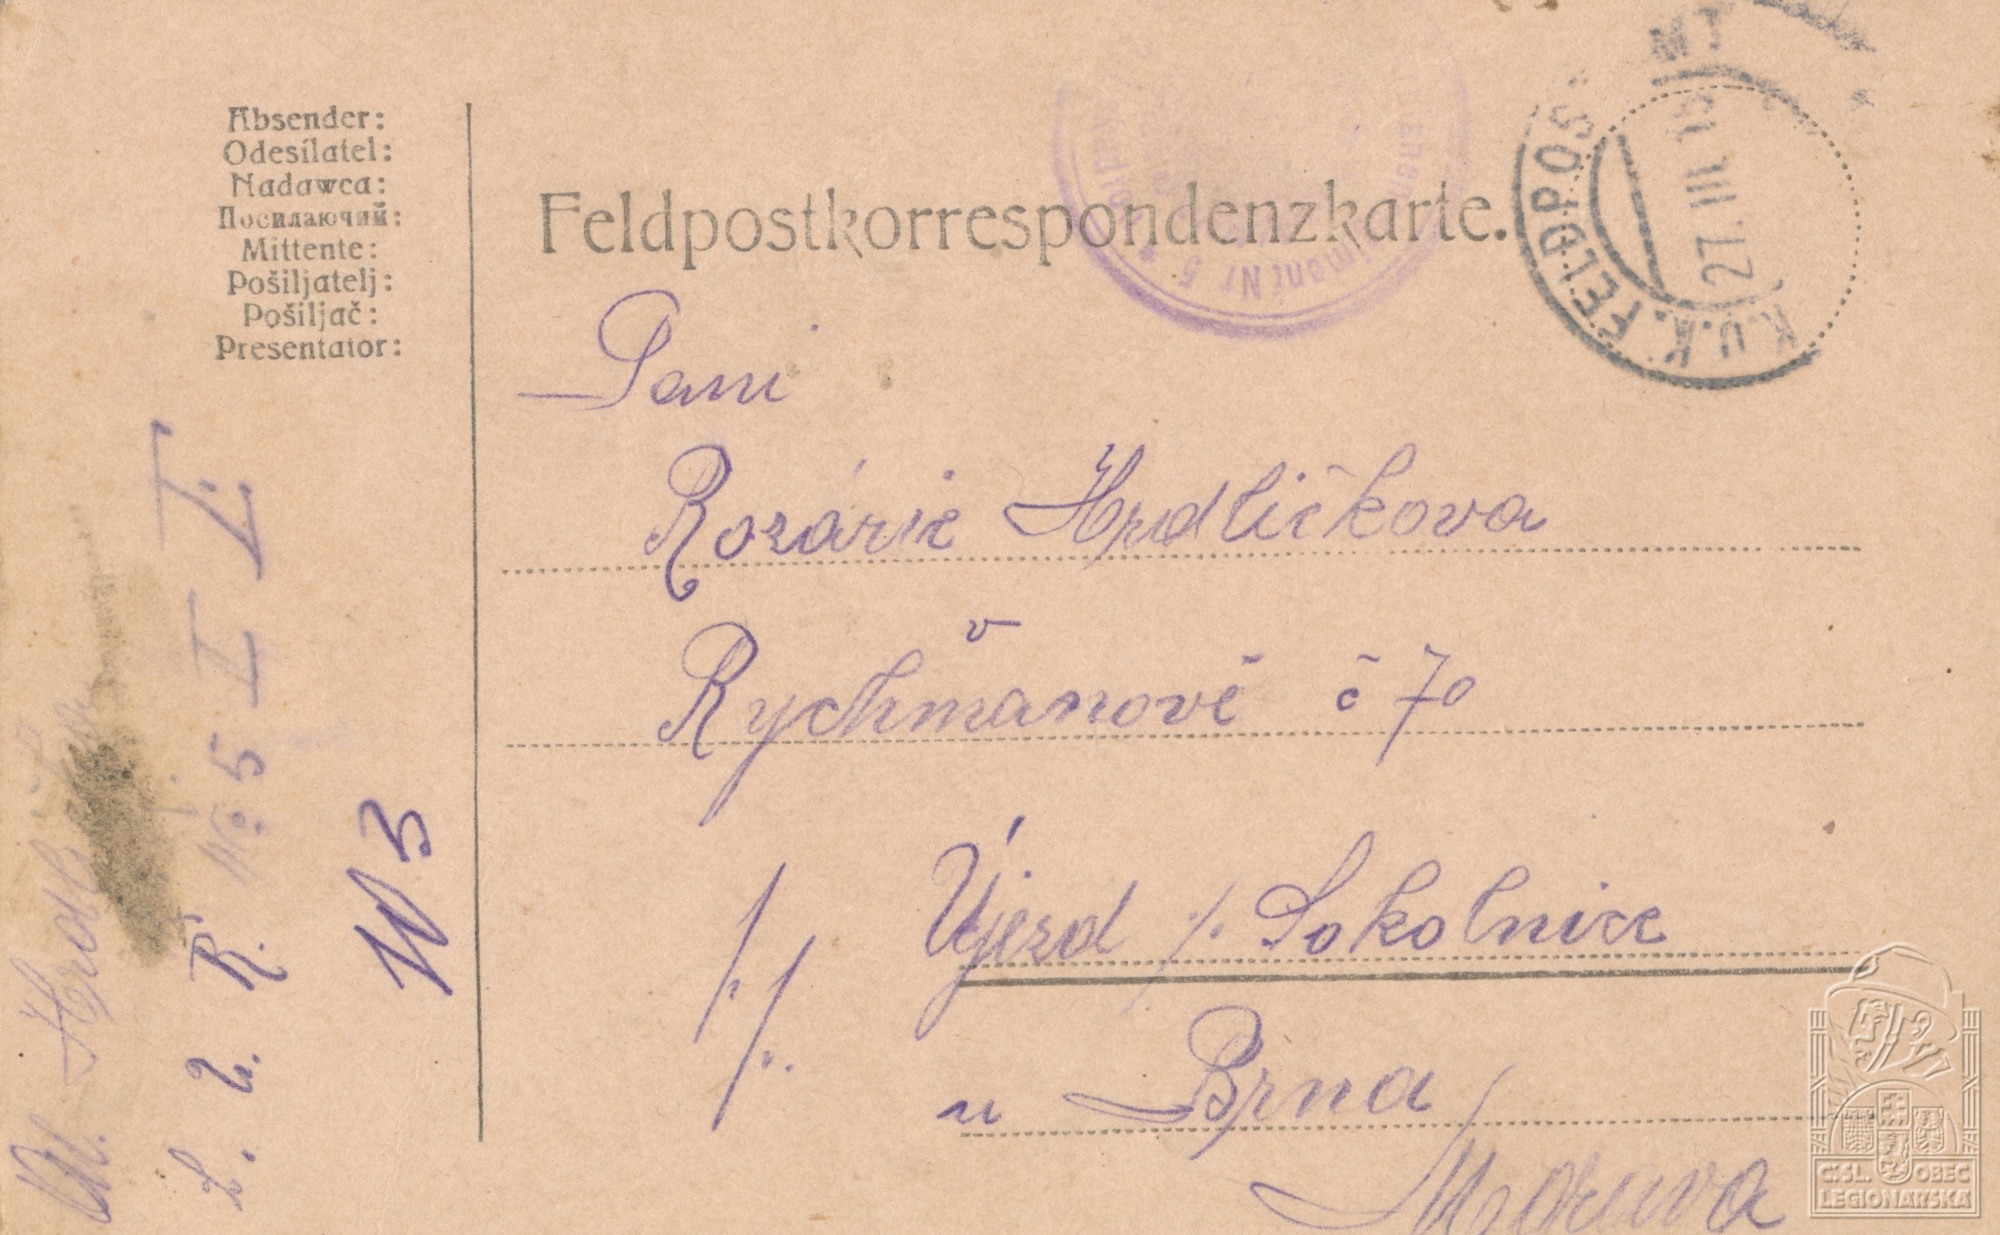 Absender:
Odesílatel:
Nadawca:
Посилаючий:
Mittente:
Pošiljatelj:
Pošiljač:
Presentator:
Feldpostkorrespondenzkarte.
K.u.K. FELDPOS
27. III. 
iment Nr 5
Paní
Rozárie Hrdličkova
v
Rychmanově č 70
Újezd /. Sokolnice
u Brna
Morava
L. I. R. No: 5 I I.
W 3
ČSL. OBEC
LEGIONÁŘSKÁ